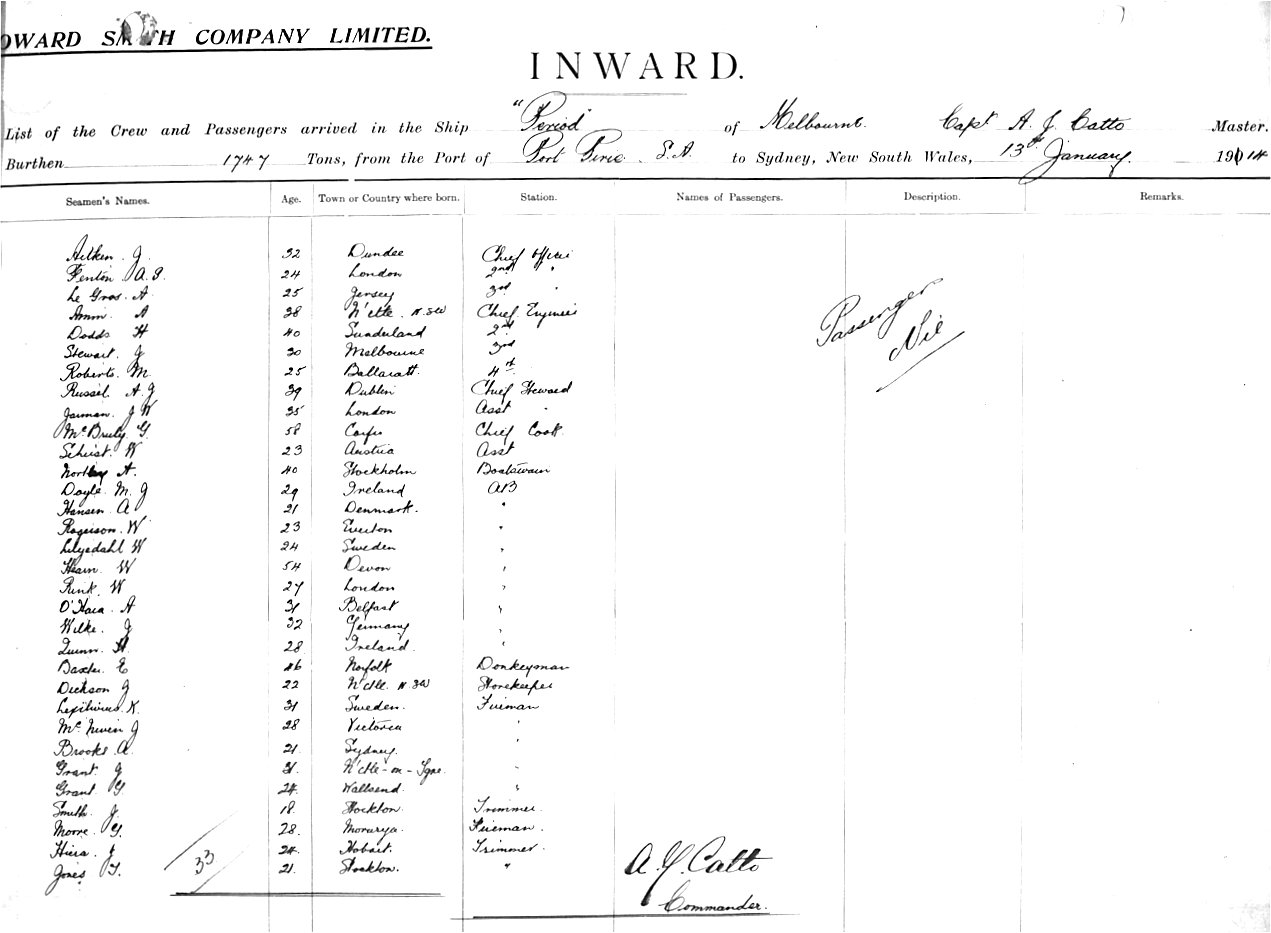 OWARD SMITH COMPANY LIMITED.
INWARD.
List of the Crew and Passengers arrived in the Ship "Period" of Melbourne. Capt A. J. Catto Master.
Burthen 1747 Tons, from the Port of Port Pirie S.A. to Sydney, New South Wales, 13th January 1914
Seamen's Names. Age. Town or Country where born. Station. Names of Passengers. Description. Remarks.
Aitken J. 32 Dundee Chief Officer
Fenton A. 24 London 2nd " "
Le Gros. A 25 Jersey 3rd "
A 38 N'ctle N.SW Chief Engineer
Dodds H 40 Sunderland 2nd
Stewart. J 30 Melbourne 3rd
Roberts. M 25 Ballaratt. 4th
Russel A J 39 Dublin Chief Steward
Jarman. J W 35 London Asst "
G. 58 Corfu Chief Cook
W 23 Austria Asst
A. 40 Stockholm Boatswain
Doyle M. J 29 Ireland AB
Hansen A 21 Denmark. "
Rogerson. W 23 Everton "
Lilyedahl W 24 Sweden "
Hearn W 54 Devon "
Rink. W 27 London "
O'Hara. A 31 Belfast "
Wilke. J 32 Germany "
Quinn. H. 28 Ireland. "
Baxter E 46 Norfolk Donkeyman
Dickson J 22 N'ctle. N.SW Storekeeper
K. 31 Sweden. Fireman
McNiven J 28 Victoria "
Brooks A. 21 Sydney. "
Grant. J 31 N'ctle-on-Tyne. "
Grant G 24. Wallsend. "
Smith. J. 18. Stockton. Trimmer.
Moore. G. 28. Moruya. Fireman.
J 24. Hobart. Trimmer.
Jones T. 21. Stockton. "
33
Passenger
Nil
A. J. Catto
Commander.